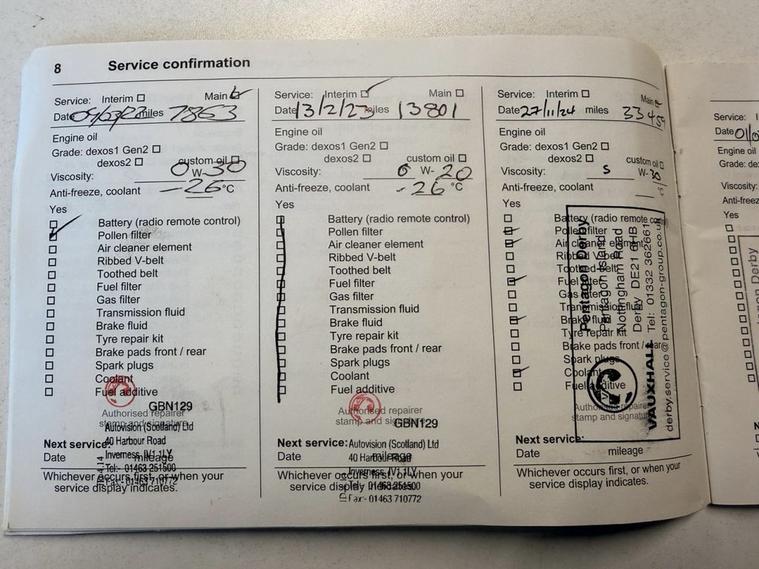 8 Service confirmation
Service: Interim Main
Date miles 7863
Engine oil
Grade: dexos1 Gen2
dexos2 custom oil
Viscosity: 0 W- 30
Anti-freeze, coolant -26 °C
Yes
Battery (radio remote control)
Pollen filter
Air cleaner element
Ribbed V-belt
Toothed belt
Fuel filter
Gas filter
Transmission fluid
Brake fluid
Tyre repair kit
Brake pads front / rear
Spark plugs
Coolant
Fuel additive
Authorised repairer
GBN129
stamp and signature
Autovision (Scotland) Ltd
Next service:
40 Harbour Road
Date mileage
Inverness, IV1 1LY
Tel:- 01463 251500
Whichever occurs first, or when your
service display indicates.
Fax:- 01463 710772
Service: Interim Main
Date 13/2/23 miles 13801
Engine oil
Grade: dexos1 Gen2
dexos2 custom oil
Viscosity: 0 W- 20
Anti-freeze, coolant -26 °C
Yes
Battery (radio remote control)
Pollen filter
Air cleaner element
Ribbed V-belt
Toothed belt
Fuel filter
Gas filter
Transmission fluid
Brake fluid
Tyre repair kit
Brake pads front / rear
Spark plugs
Coolant
Fuel additive
Authorised repairer
stamp and
GBN129
Next service: Autovision (Scotland) Ltd
Date mileage
40 Harbour Road
Inverness, IV1 1LY
Whichever occurs first, or when your
service display indicates.
Tel:- 01463 251500
Fax:- 01463 710772
Service: Interim Main
Date 27/11/24 miles
Engine oil
Grade: dexos1 Gen2
dexos2 custom oil
Viscosity: 5 W- 30
Anti-freeze, coolant °C
Yes
Battery (radio remote
Pollen filter
Air cleaner element
Ribbed V-belt
Toothed belt
Fuel filter
Gas filter
Transmission fluid
Brake fluid
Tyre repair kit
Brake pads front / rear
Spark plugs
Coolant
Fuel additive
Authorised repairer
stamp and signature
Pentagon Derby
Pentagon Island
Nottingham Road
Derby DE21 6HB
Tel: 01332 362661
VAUXHALL derby.service@pentagon-group.co.uk
Next service:
Date mileage
Whichever occurs first, or when your
service display indicates.
Service: I
Date
Engine oil
Grade: de
Viscosity:
Anti-freez
Yes
Derby